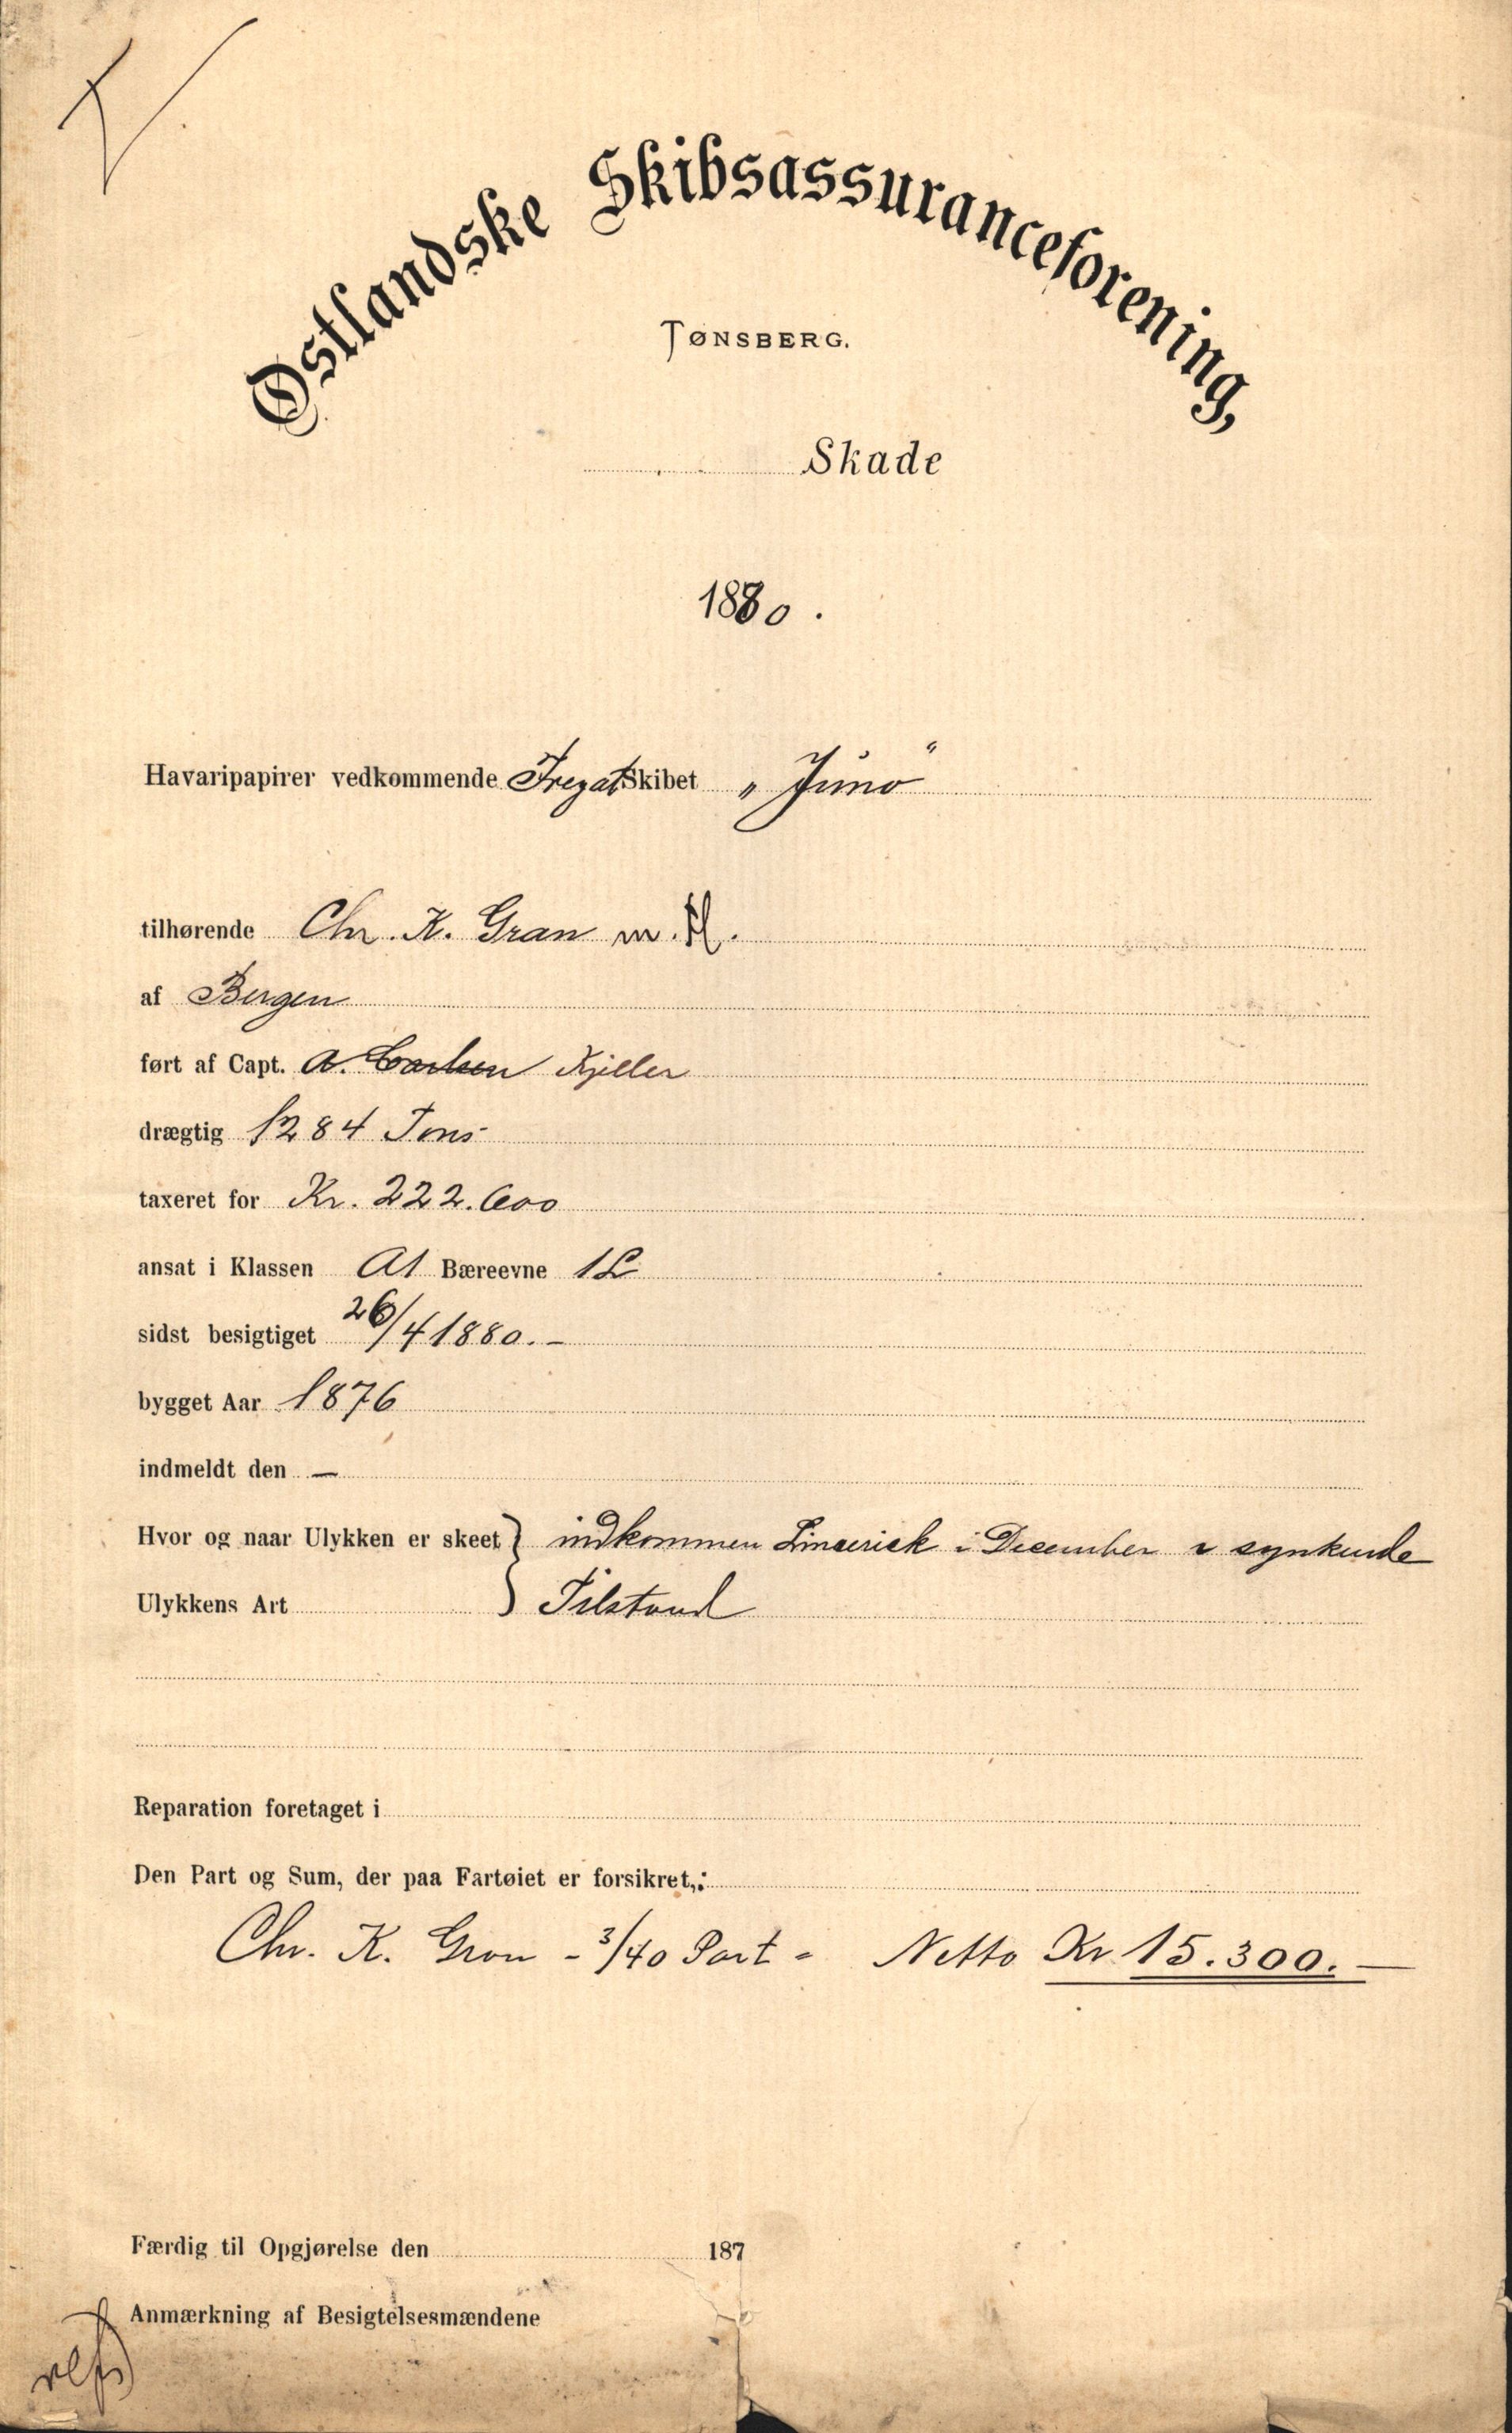 Østlandske Skibsassuranceforening,
TØNSBERG.
Skade
1880.
Havaripapirer vedkommende Fregat Skibet „Juno“
tilhørende Chr. K. Gran m. fl.
af Bergen
ført af Capt. A. Carlsen Kjeller
drægtig 1284 Tons
taxeret for Kr. 222.600
ansat i Klassen A1 Bæreevne 1L
sidst besigtiget 26/4 1880.-
bygget Aar 1876
indmeldt den —
Hvor og naar Ulykken er skeet } indkommen Limerick i December i synkende
Ulykkens Art } Tilstand
Reparation foretaget i
Den Part og Sum, der paa Fartøiet er forsikret,:
Chr. K. Gran - 3/40 Part - Netto Kr 15.300.—
Færdig til Opgjørelse den 187
Anmærkning af Besigtelsesmændene